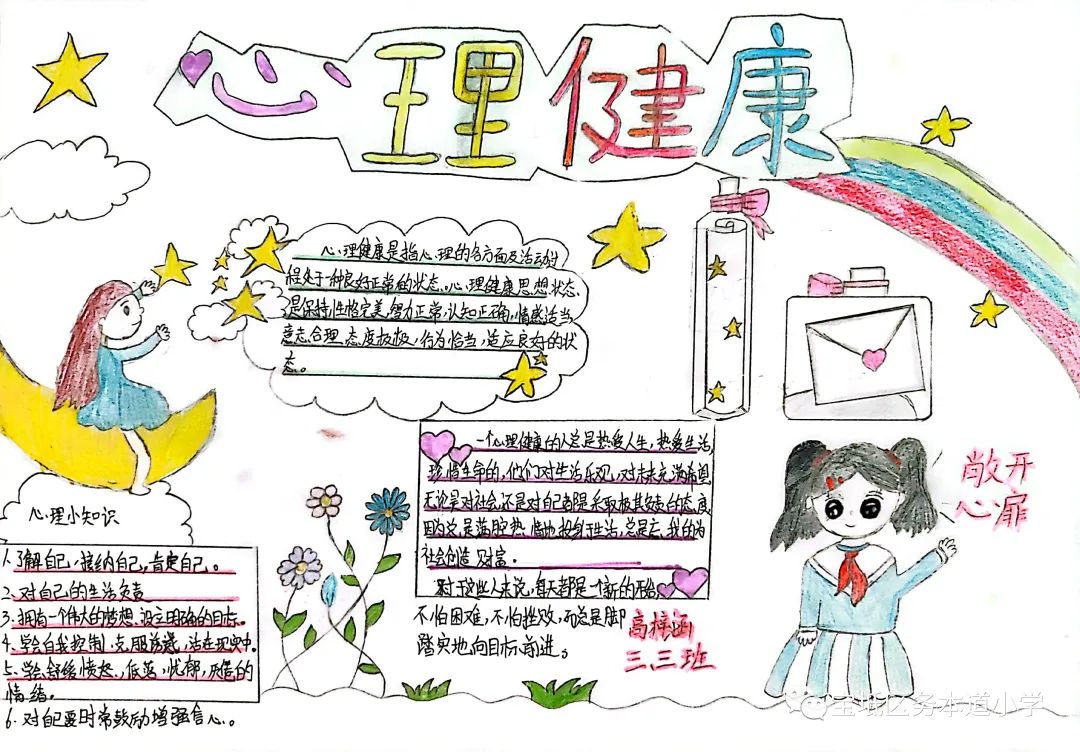 心理健康
心理健康是指心理的各方面及活动过
程处于一种良好正常的状态。心理健康思想状态
是保持性格完美,智力正常,认知正确,情感适当,
意志合理,态度积极,行为恰当,适应良好的状
态。
一个心理健康的人总是热爱人生,热爱生活,
珍惜生命的,他们对生活乐观,对未来充满希望
无论是对社会,还是对自己都是采取极其负责的态度
因为总是满腔热情地投身于生活,总是忘我的为
社会创造财富。
对于这些人来说,每天都是一个新的开始
不怕困难,不怕挫败,而总是脚
踏实地向目标前进。
敞开
心扉
心理小知识
1.了解自己,接纳自己,肯定自己。
2.对自己的生活负责
3.拥有一个伟大的梦想,设立明确的目标。
4.学会自我控制,克服诱惑,活在现实中。
5.学会舒缓愤怒,低落,忧郁,厌倦的
情绪。
6.对自己要时常鼓励增强信心。
高梓涵
三三班
宝坻区务本道小学